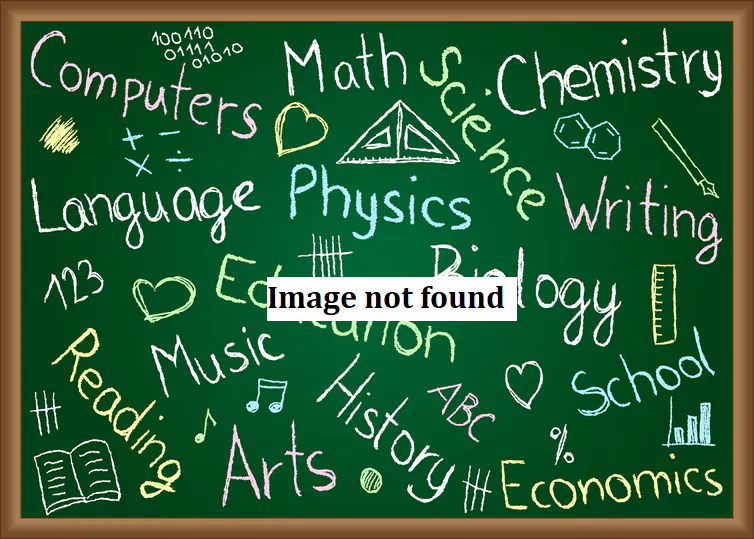 100110
01111
01010
Computers
Math
Science
Chemistry
+ −
× ÷
Language
Physics
Writing
123
Education
Biology
Image not found
Reading
Music
History
ABC
School
Arts
%
Economics